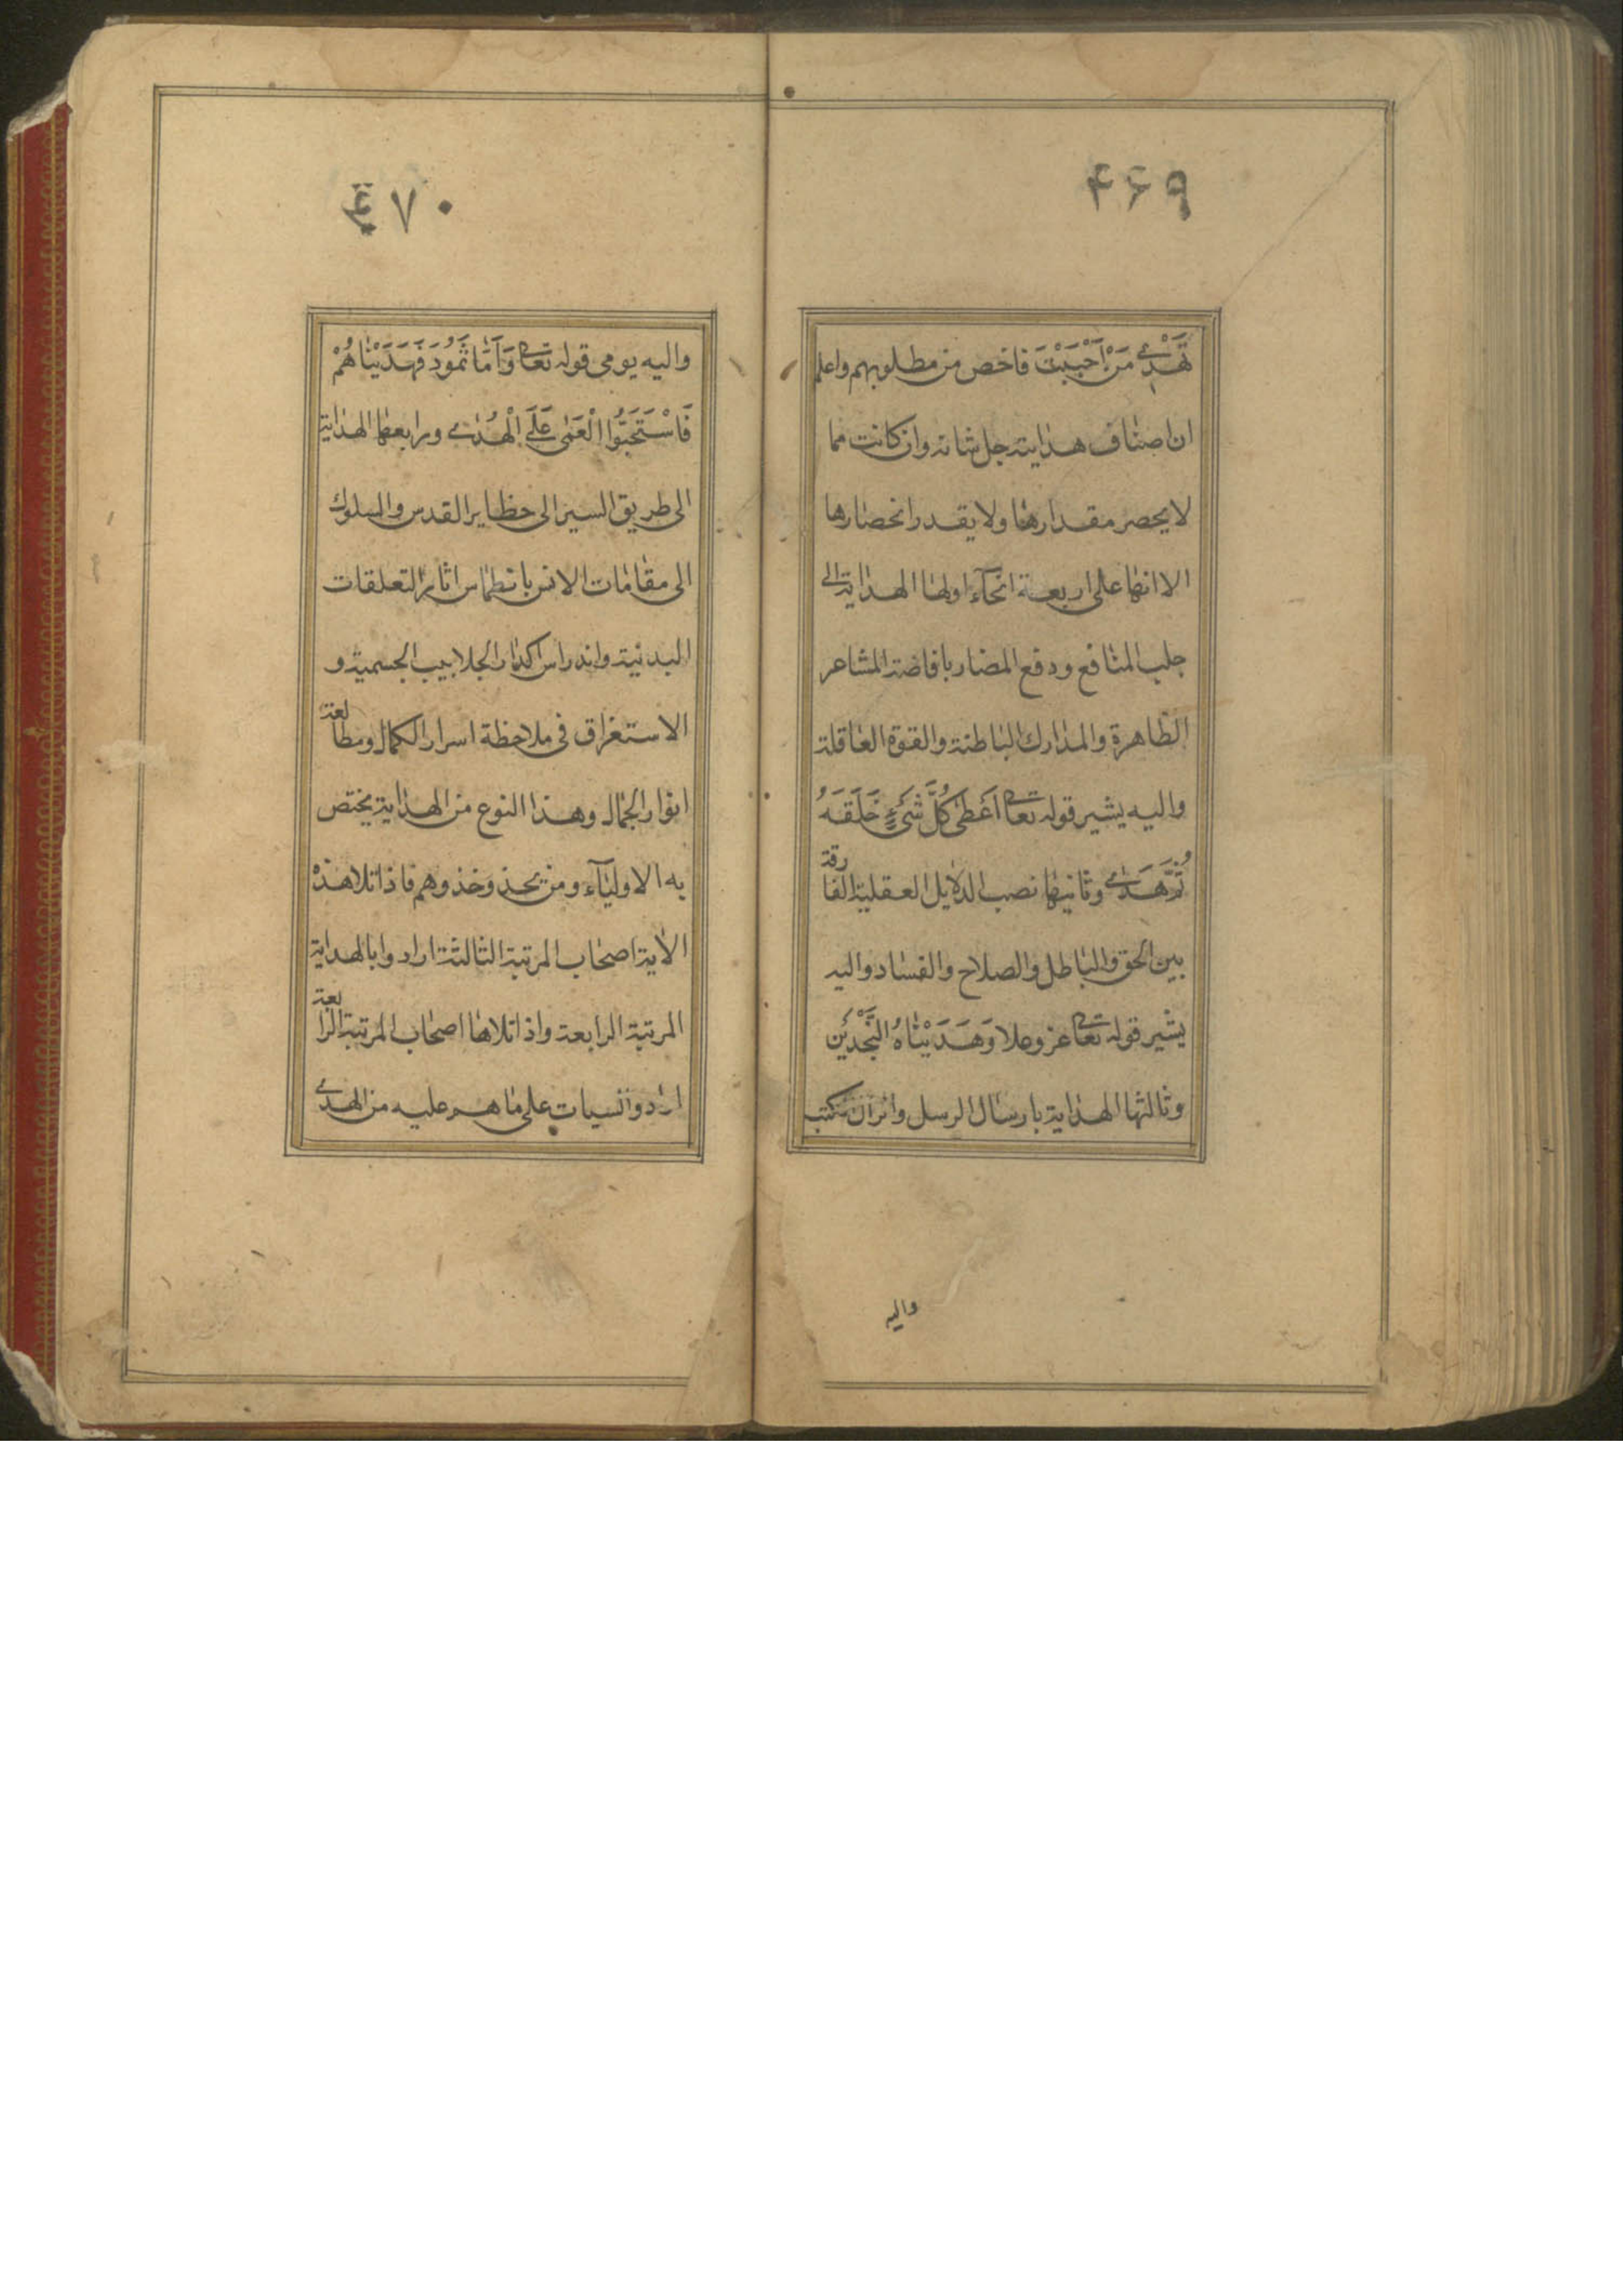 ۴۶۹
تَهْدِي مَنْ اَحْبَبْتَ فاخص من مطلوبهم واعلم
ان اصناف هدايته جل شانه وان كانت مما
لا يحصر مقدارها ولا يقدر انحصارها
الا انها على اربعة انحآء اولها الهداية الى
جلب المنافع ودفع المضار بافاضة المشاعر
الظاهرة والمدارك الباطنة والقوة العاقلة
واليه يشير قوله تعا اَعْطى كُلَّ شَيْءٍ خَلَقَهُ
ثُمَّ هَدى وثانيها نصب الدلايل العقلية الفارقة
بين الحق والباطل والصلاح والفساد واليه
يشير قوله تعا عز وعلا وَهَدَيْناهُ النَّجْدَيْن
وثالثها الهداية بارسال الرسل وانزال الكتب
واليه
۴۷۰
واليه يومى قوله تعا وَاَمّا ثَمُودَ فَهَدَيْناهُمْ
فَاسْتَحَبُّوا الْعَمٰى عَلَى الْهُدٰى ورابعها الهداية
الى طريق السير الى حظاير القدس والسلوك
الى مقامات الانس بانطماس اثار التعلقات
البدنية واندراس اكدار الجلابيب الجسمية و
الاستغراق فى ملاحظة اسرار الكمال ومطالعة
انوار الجمال وهذا النوع من الهداية يختص
به الاوليآء ومن يحذو حذوهم فاذا تلا هذه
الاية اصحاب المرتبة الثالثة ارادوا بالهداية
المرتبة الرابعة واذا تلاها اصحاب المرتبة الرابعة
ارادوا الثبات على ما هم عليه من الهدى